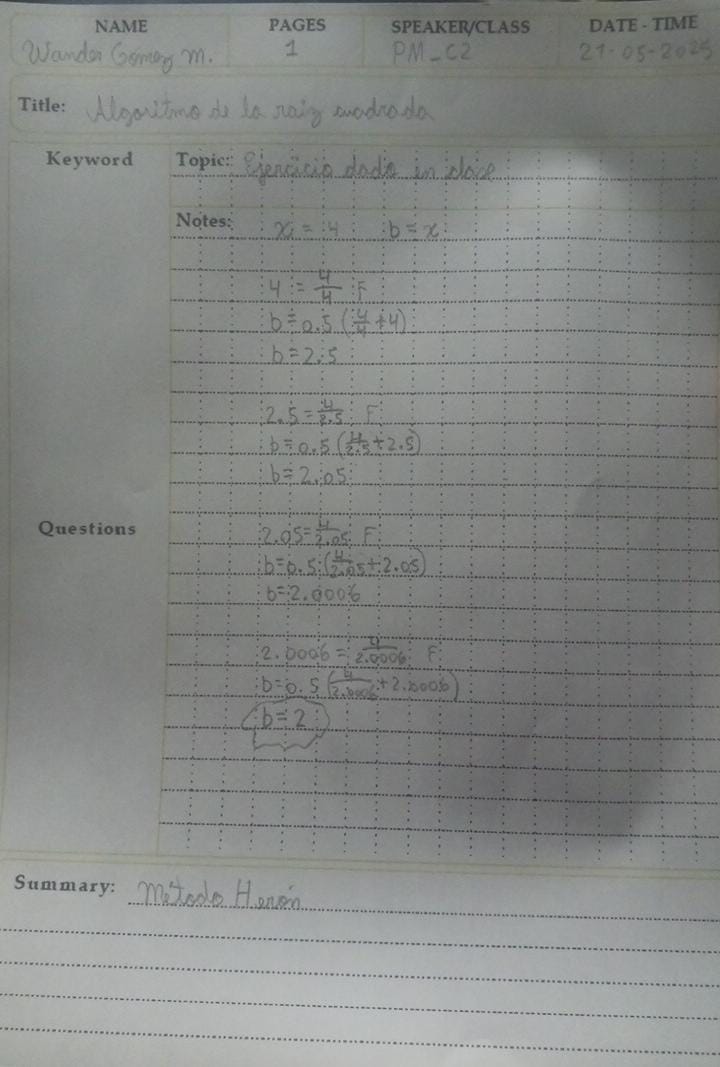 NAME PAGES SPEAKER/CLASS DATE - TIME
Wander Gomez M. 1 PM_C2 21-05-2025
Title: Algoritmo de la raiz cuadrada
Keyword Topic: Ejercicio dado en clase
Notes: x = 4 b = x
4 = 4/4 F
b = 0.5 (4/4 + 4)
b = 2.5
2.5 = 4/2.5 F
b = 0.5 (4/2.5 + 2.5)
b = 2.05
Questions 2.05 = 4/2.05 F
b = 0.5 (4/2.05 + 2.05)
b = 2.0006
2.0006 = 4/2.0006 F
b = 0.5 (4/2.0006 + 2.0006)
b = 2
Summary: Método Herón